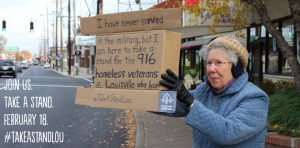 I have never served
in the military, but I
am here to take a
stand for the 916
homeless veterans
in Louisville who have
#TakeAStandLou
JOIN US.
TAKE A STAND.
FEBRUARY 18.
#TAKEASTANDLOU